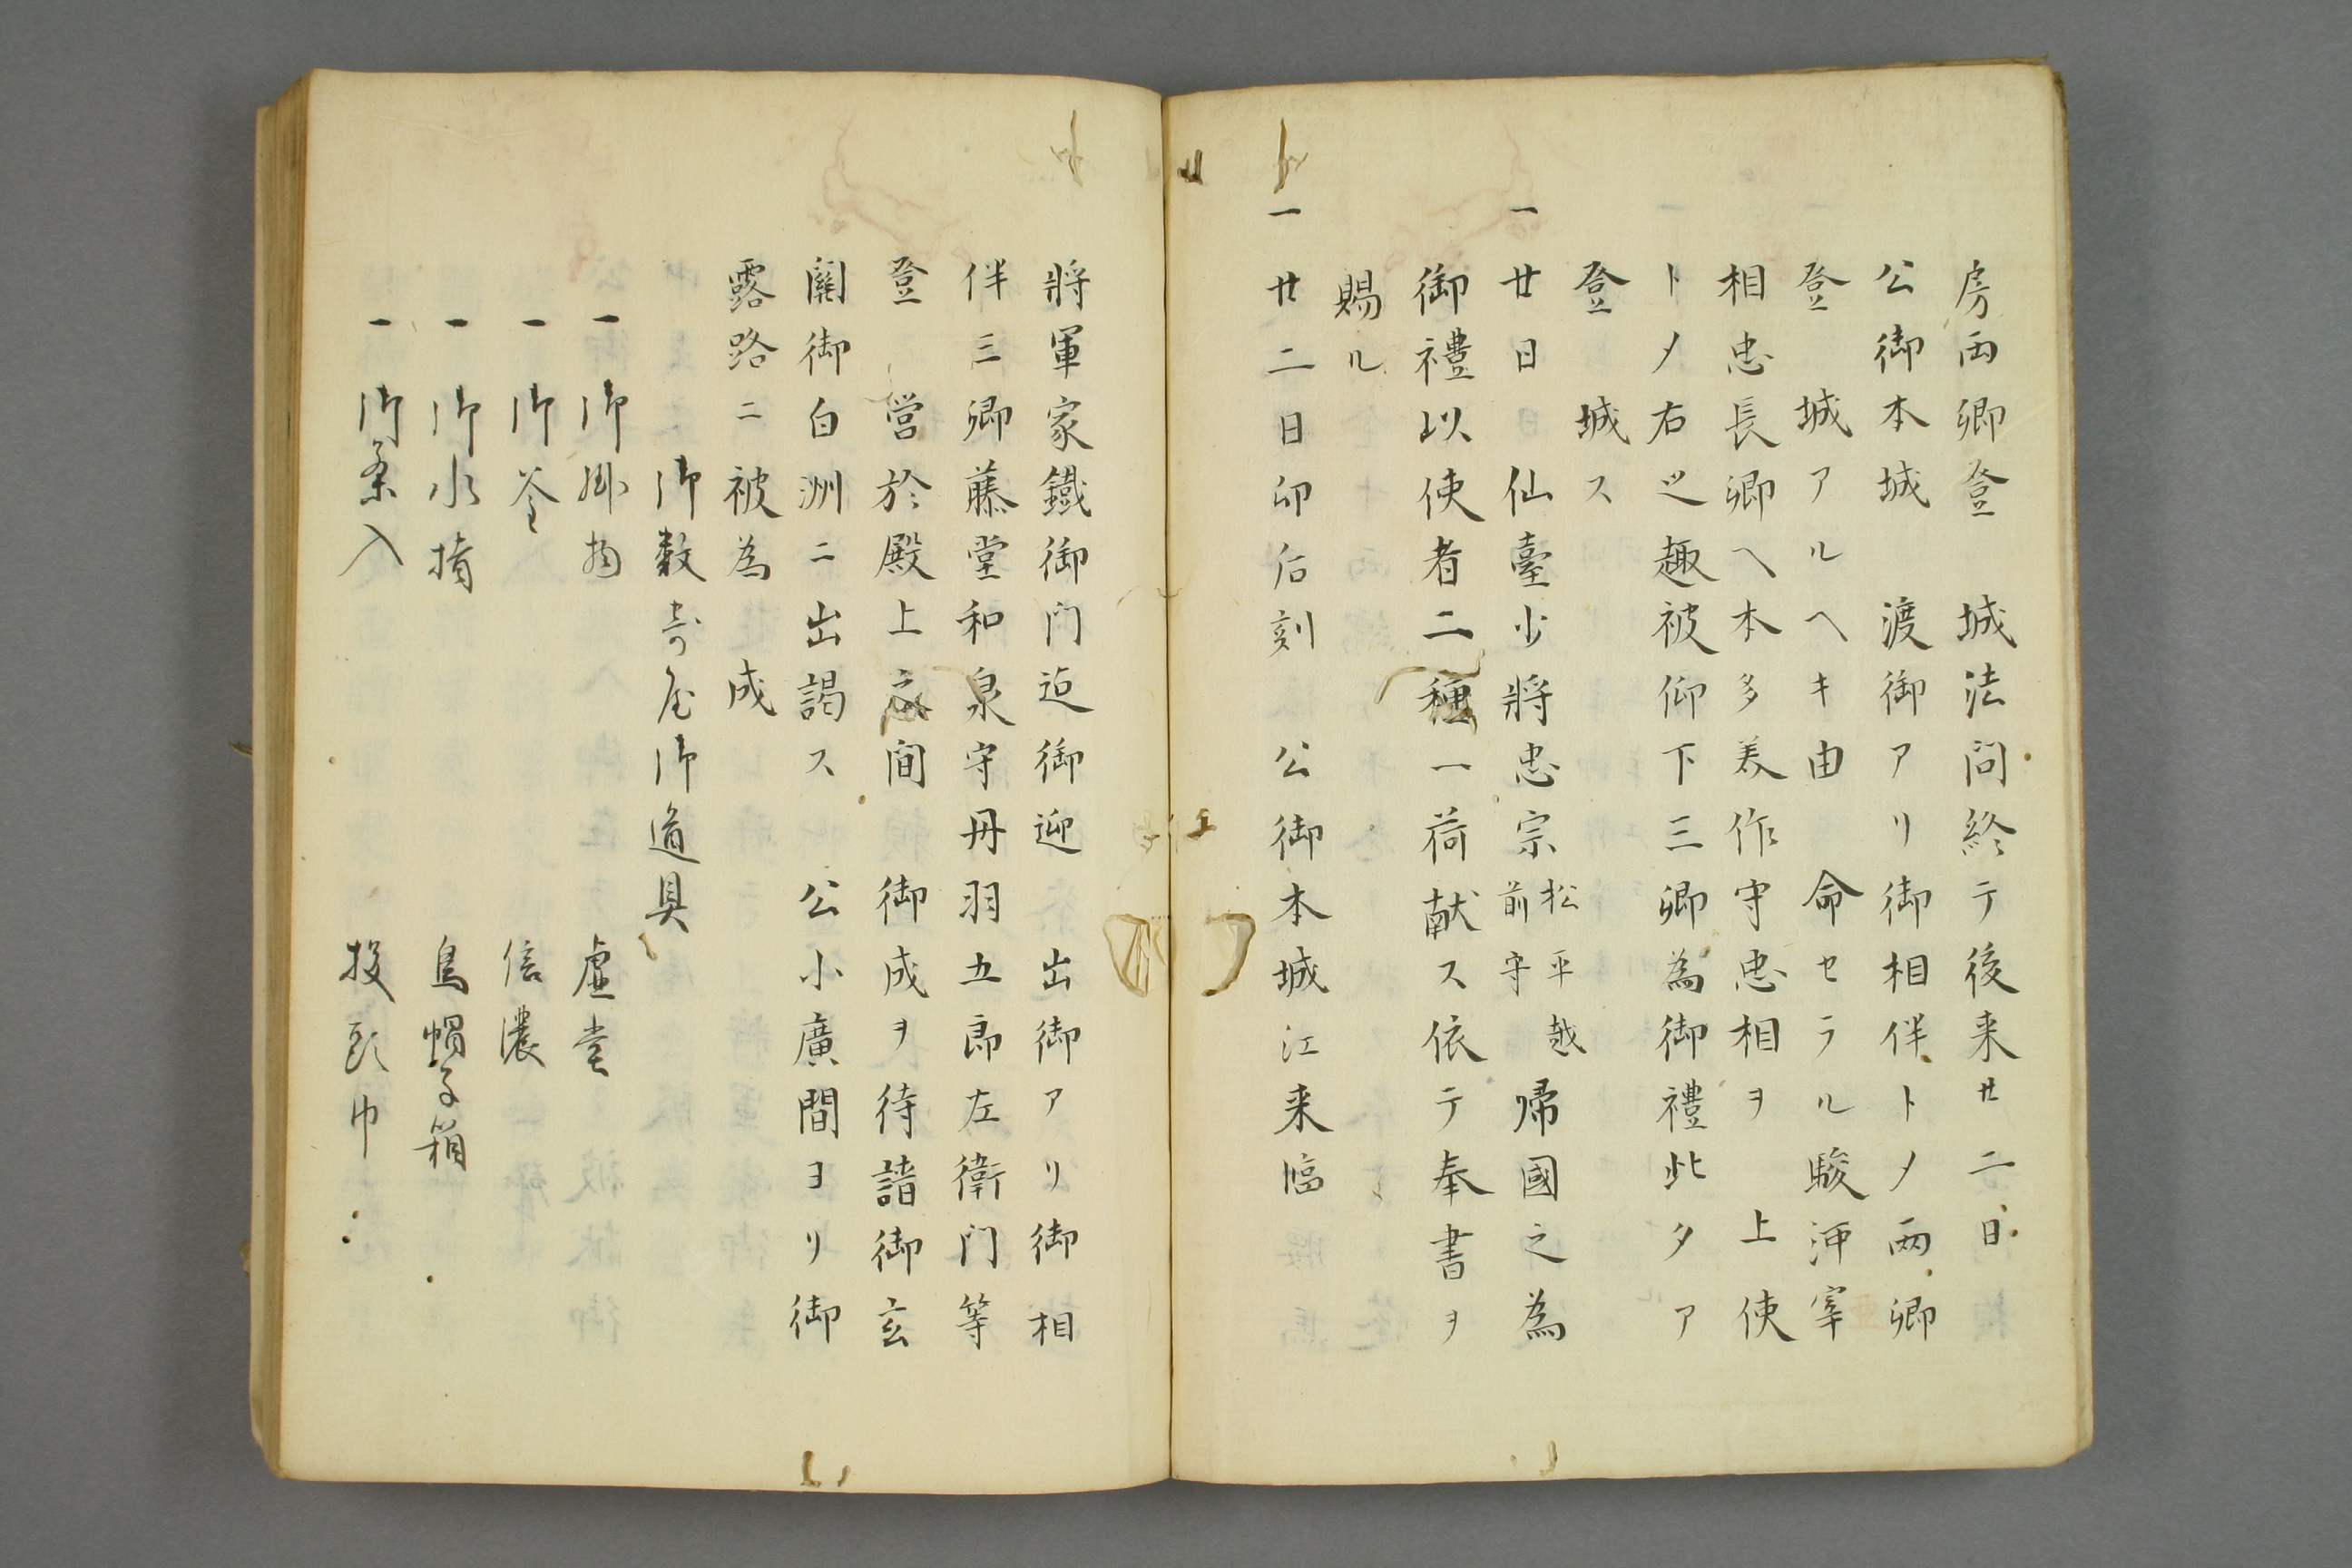 房両卿登　城法問終テ後来廿二日
公御本城　渡御アリ御相伴トノ両卿
登　城アルヘキ由　命セラル駿河宰
相忠長卿ヘ本多美作守忠相ヲ　上使
トノ右之趣被仰下三卿為御禮此夕ア
登　城ス
一　廿日　仙臺少將忠宗松平越前守帰國之為
御禮以使者二種一荷献ス依テ奉書ヲ
賜ル
一　廿二日卯后刻　公御本城江来臨
將軍家鐵御門迠御迎　出御アリ御相
伴三卿藤堂和泉守丹羽五郎左衛門等
登　営於殿上之間　御成ヲ待請御玄
關御白洲ニ出謁ス　公小廣間ヨリ御
露路ニ被為　成
御数寄屋御道具
一　御掛物　虚堂
一　御釜　信濃
一　御水指　烏帽子箱
一　御茶入　投頭巾